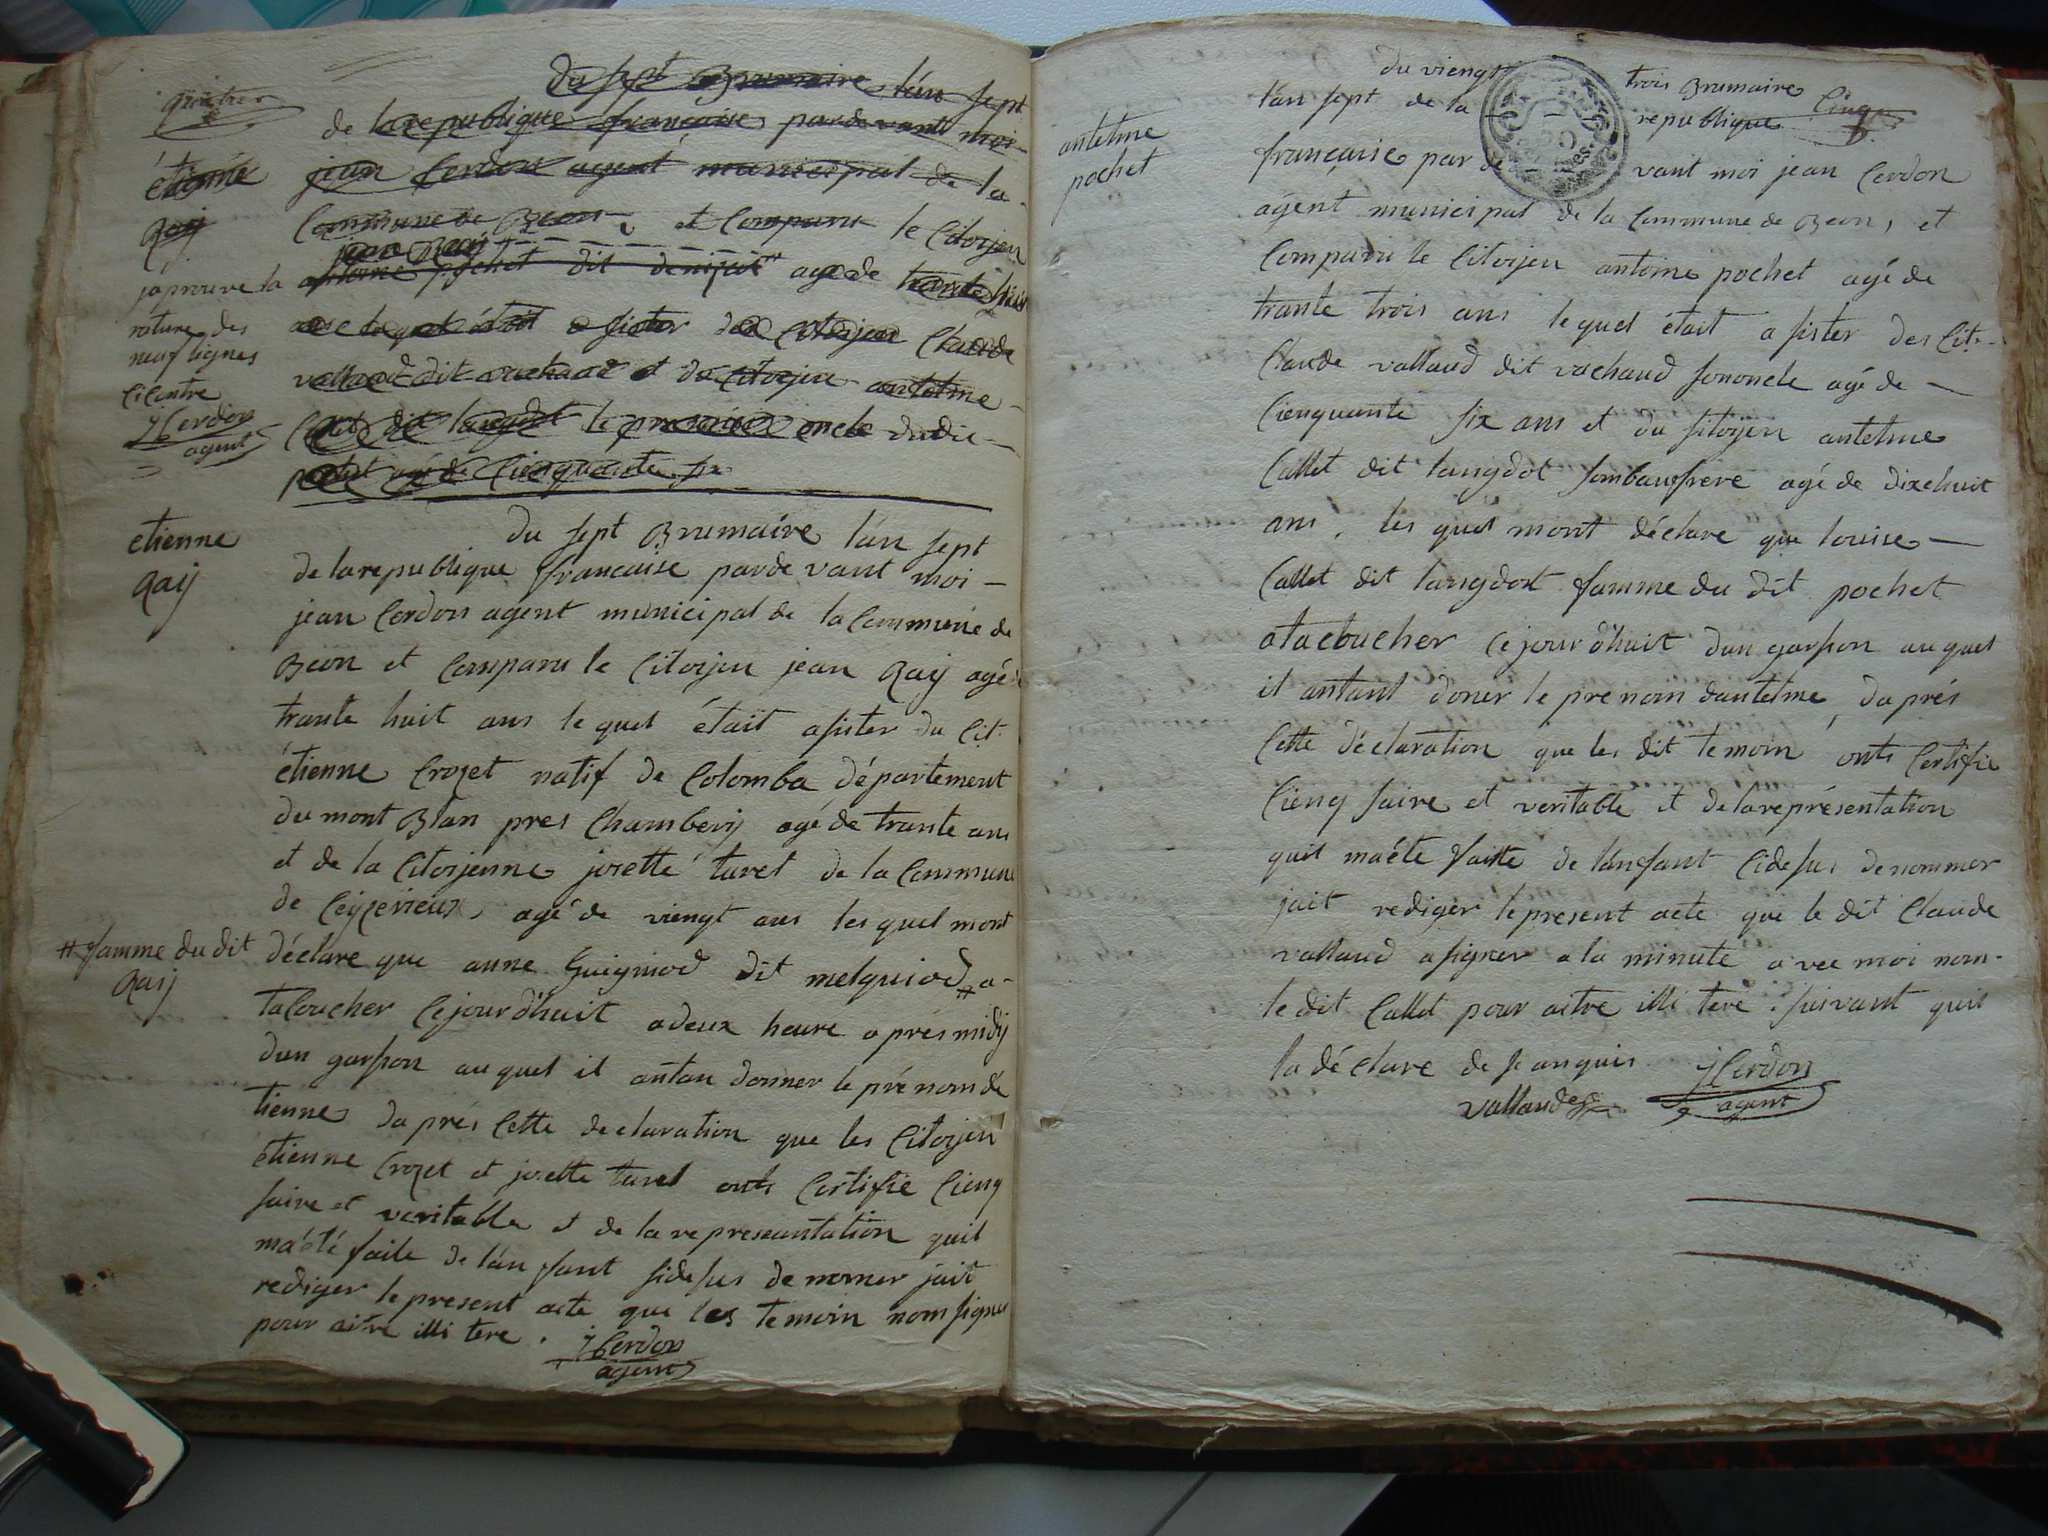 quatre
du sept Brumaire lán sept
de la republique francaise pardevant moi
étienne
Raÿ
jean Cerdon agent municipal de la
Commune de Beon, et Comparu le Citoijen
jean Raÿ
antoine pochet dit agé de trante huit
ans le quel était asister des Citoijen Claude
vallaud dit vachaud et du Citoijen antelme
Callet dit langdot le premier oncle dudit
pochet agé de Cienquante six
japrouve la
rature des
neuf lignes
Cicontre
JCerdon
agent
etienne
Raij
du sept Brumaire lán sept
de la republique francaise parde vant moi
jean Cerdon agent municipal de la Commune de
Beon et Comparu le Citoijen jean Raij agé de
trante huit ans le quel était asister du Cit.
étienne Crozet natif de Colomba département
du mont Blan pres Chamberij agé de trante ans
et de la Citoijenne josette taret de la Commune
de Ceijzerieux, agé de viengt ans les quel mont
# famme du dit
Raij
déclare que anne Guigniod dit melquiod # a
tacoucher Cejourdhuit a deux heure aprés midij
dun garson au quel il antan donner le prénom dé
tienne daprés Cette declaration que les Citoijen
étienne Crozet et josette taret onts Certifie Cienq
saire et veritable et de la represantation quil
maété faite de lán fant sidesus de nomer jait
rediger le present acte que les temoin nom signer
pour aitre illi tere.
JCerdon
agent
antelme
pochet
du viengt trois Brumaire
lán sept de la republique Cienq
francaise par de vant moi jean Cerdon
agent municipal de la Commune de Beon, et
Comparu le Citoijen antoine pochet agé de
trante trois ans le quel était asister des Cit.
Claude vallaud dit vachaud sononcle agé de
Cienquante six ans et du sitoijen antelme
Callet dit langdot sombaufrere agé de dixehuit
ans, les quel mont déclare que louise
Callet dit langdot famme du dit pochet
atacoucher Cejourdhuit dun garson au quel
il antant doner le prenom dantelme, daprés
Cette déclaration que les dit temoin onts Certifie
Cienq saire et veritable et de la représentation
quil maéte faitte de lánfant Cidesus denommer
jait rediger le present acte que le dit Claude
vallaud asigner a la minute avec moi nom
le dit Callet pour aitre illi tere. suivant quil
la déclare de se anquis
vallaud
JCerdon
agent